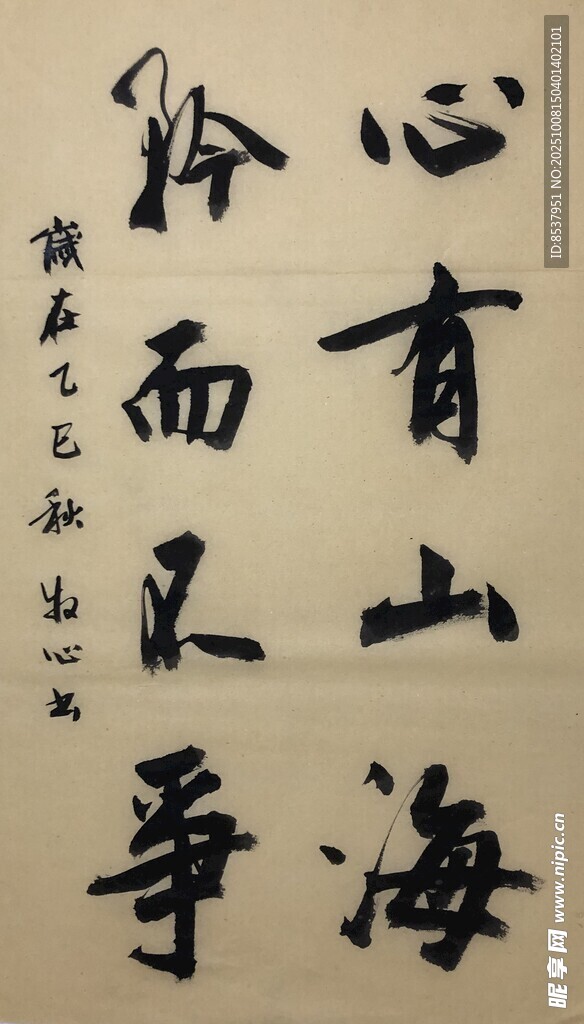 心有山海
矜而不争
歲在乙巳秋 牧心书
ID:8537951 NO:20251008150401402101
昵享网 www.nipic.cn